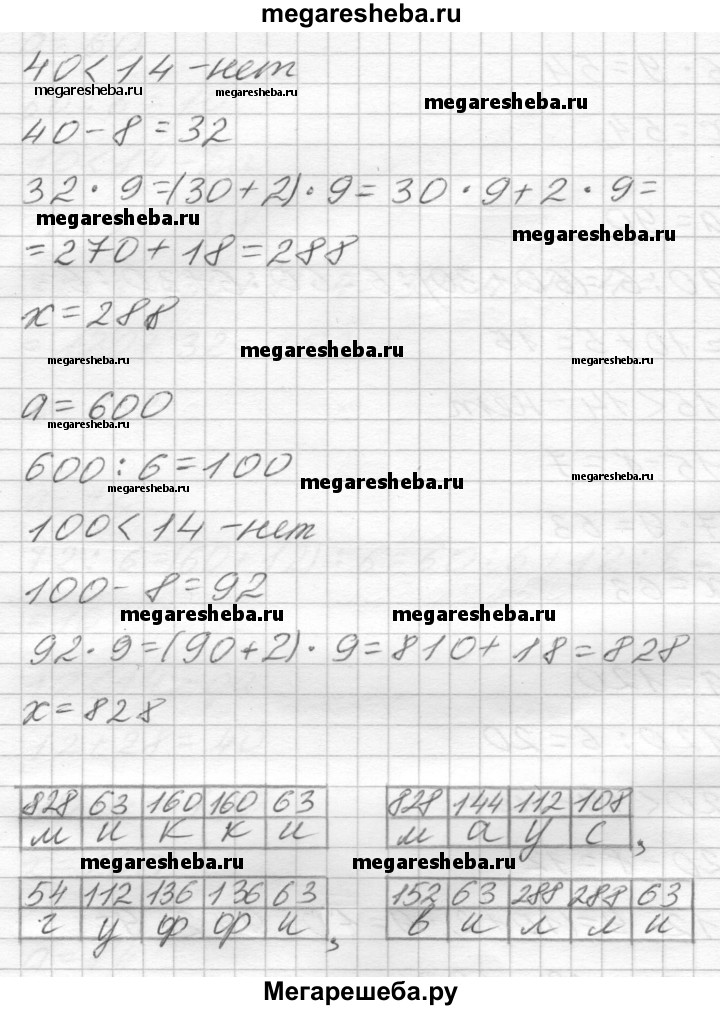 megaresheba.ru
40 < 14 - нет
megaresheba.ru megaresheba.ru megaresheba.ru
40 - 8 = 32
32 · 9 = (30 + 2) · 9 = 30 · 9 + 2 · 9 =
megaresheba.ru megaresheba.ru
= 270 + 18 = 288
x = 288
megaresheba.ru megaresheba.ru megaresheba.ru
a = 600
megaresheba.ru
600 : 6 = 100
megaresheba.ru megaresheba.ru megaresheba.ru
100 < 14 - нет
100 - 8 = 92
megaresheba.ru megaresheba.ru
92 · 9 = (90 + 2) · 9 = 810 + 18 = 828
x = 828
828 63 160 160 63 828 144 112 108
м и к к и м а у с ,
megaresheba.ru megaresheba.ru
54 112 136 136 63 152 63 288 288 63
г у ф ф и , в и л л и
Мегарешеба.ру